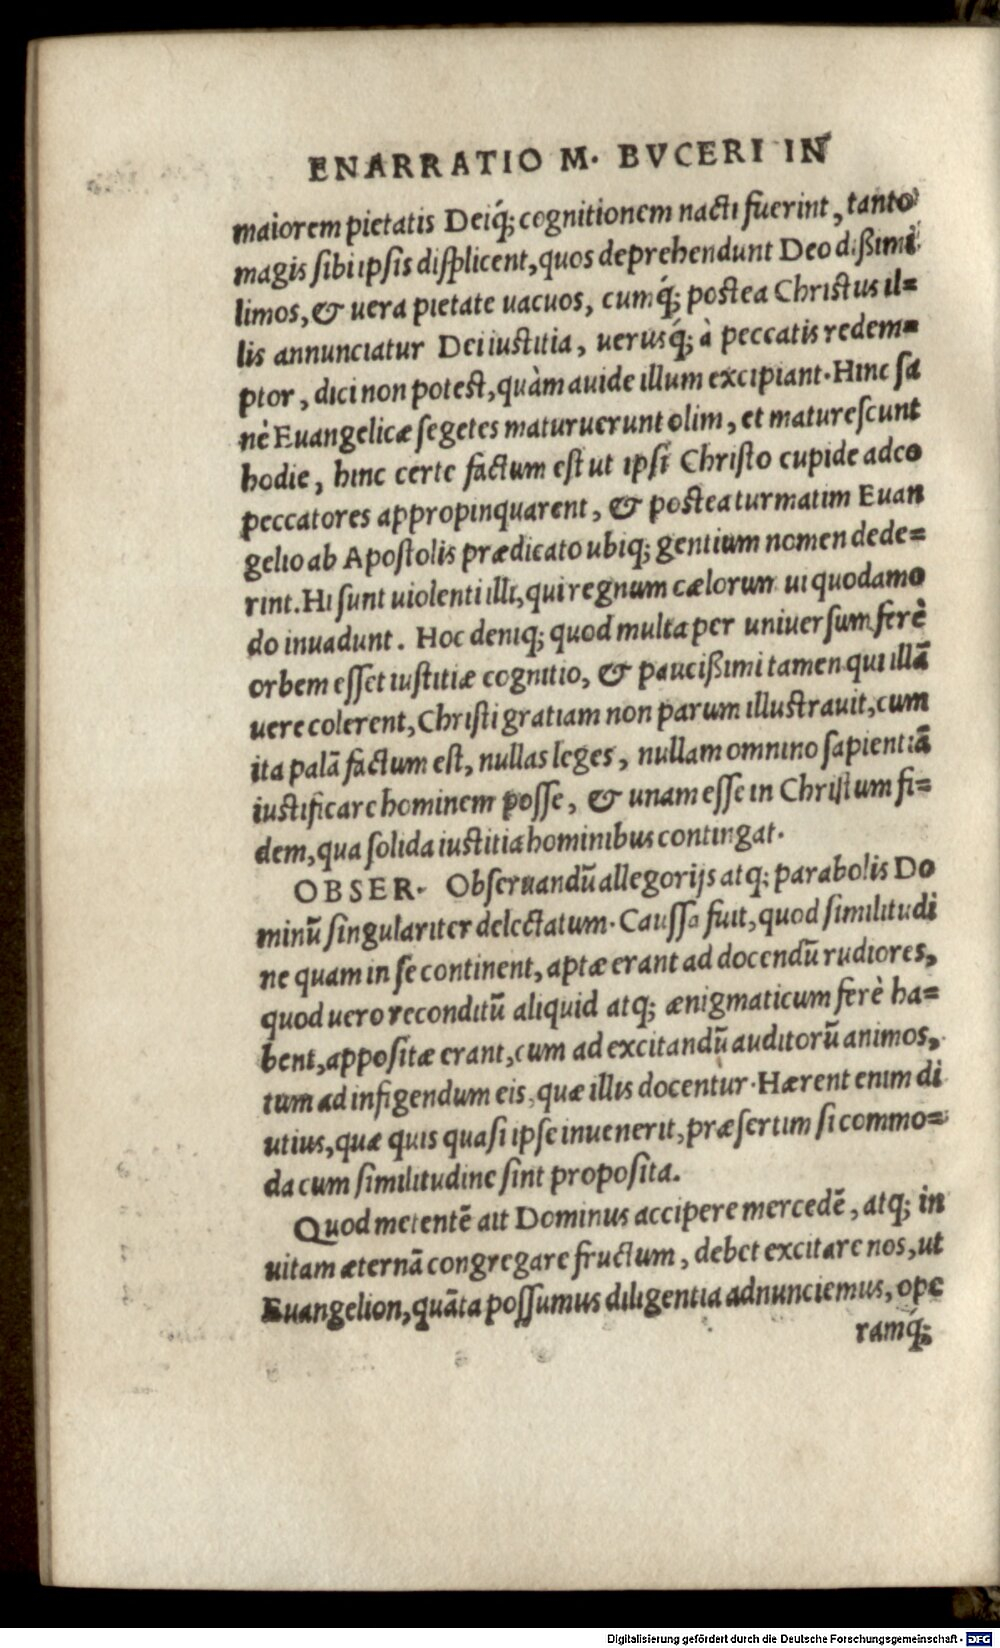 ENARRATIO M. BVCERI IN
maiorem pietatis Deiq́; cognitionem nacti fuerint, tanto
magis sibi ipsis displicent, quos deprehendunt Deo dißimi
limos, & uera pietate uacuos, cumq́; postea Christus il=
lis annunciatur Dei iustitia, uerusq́; à peccatis redem=
ptor, dici non potest, quàm auide illum excipiant. Hinc sa
nè Euangelicæ segetes maturuerunt olim, et maturescunt
hodie, hinc certe factum est ut ipsi Christo cupide adeo
peccatores appropinquarent, & postea turmatim Euan
gelio ab Apostolis prædicato ubiq; gentium nomen dede=
rint. Hi sunt uiolenti illi, qui regnum cælorum ui quodamo
do inuadunt. Hoc deniq; quod multa per uniuersum ferè
orbem esset iustitiæ cognitio, & paucißimi tamen qui illā
uere colerent, Christi gratiam non parum illustrauit, cum
ita palā factum est, nullas leges, nullam omnino sapientiā
iustificare hominem posse, & unam esse in Christum fi=
dem, qua solida iustitia hominibus contingat.
OBSER. Obseruandū allegorijs atq; parabolis Do
minū singulariter delectatum. Caussa fuit, quod similitudi
ne quam in se continent, aptæ erant ad docendū rudiores,
quod uero reconditū aliquid atq; ænigmaticum ferè ha=
bent, appositæ erant, cum ad excitandū auditorū animos,
tum ad infigendum eis, quæ illis docentur. Hærent enim di
utius, quæ quis quasi ipse inuenerit, præsertim si commo=
da cum similitudine sint proposita.
Quod metentē ait Dominus accipere mercedē, atq; in
uitam æternā congregare fructum, debet excitare nos, ut
Euangelion, quāta possumus diligentia adnunciemus, ope
ramq́;
Digitalisierung gefördert durch die Deutsche Forschungsgemeinschaft - DFG